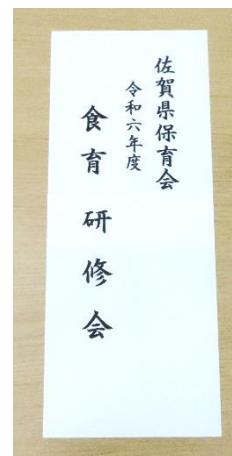 佐賀県保育会
令和六年度
食育研修会